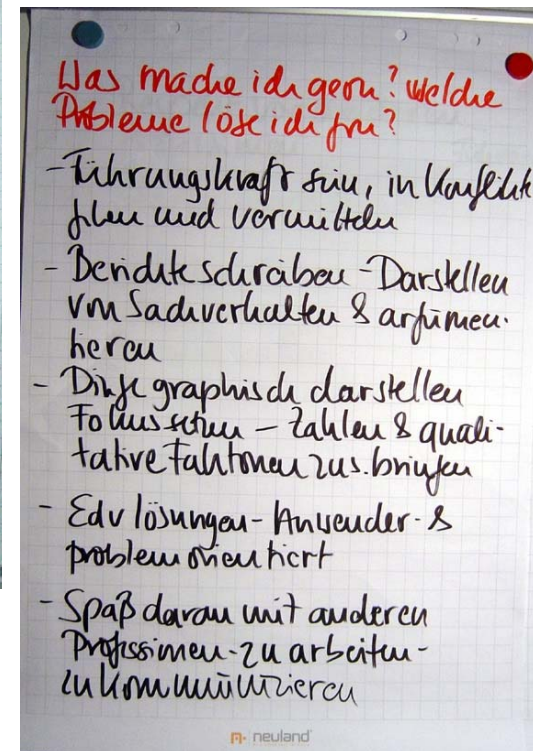 Was mache ich gern? Welche
Probleme löse ich gern?
- Führungskraft sein, in Konflikte
gehen und vermitteln
- Berichte schreiben - Darstellen
von Sachverhalten & argumen-
tieren
- Dinge graphisch darstellen
Fokus setzen - Zahlen & quali-
tative Faktoren zus. bringen
- Edv lösungen - Anwender- &
problemorientiert
- Spaß daran mit anderen
Professionen - zu arbeiten -
zu kommunizieren
neuland